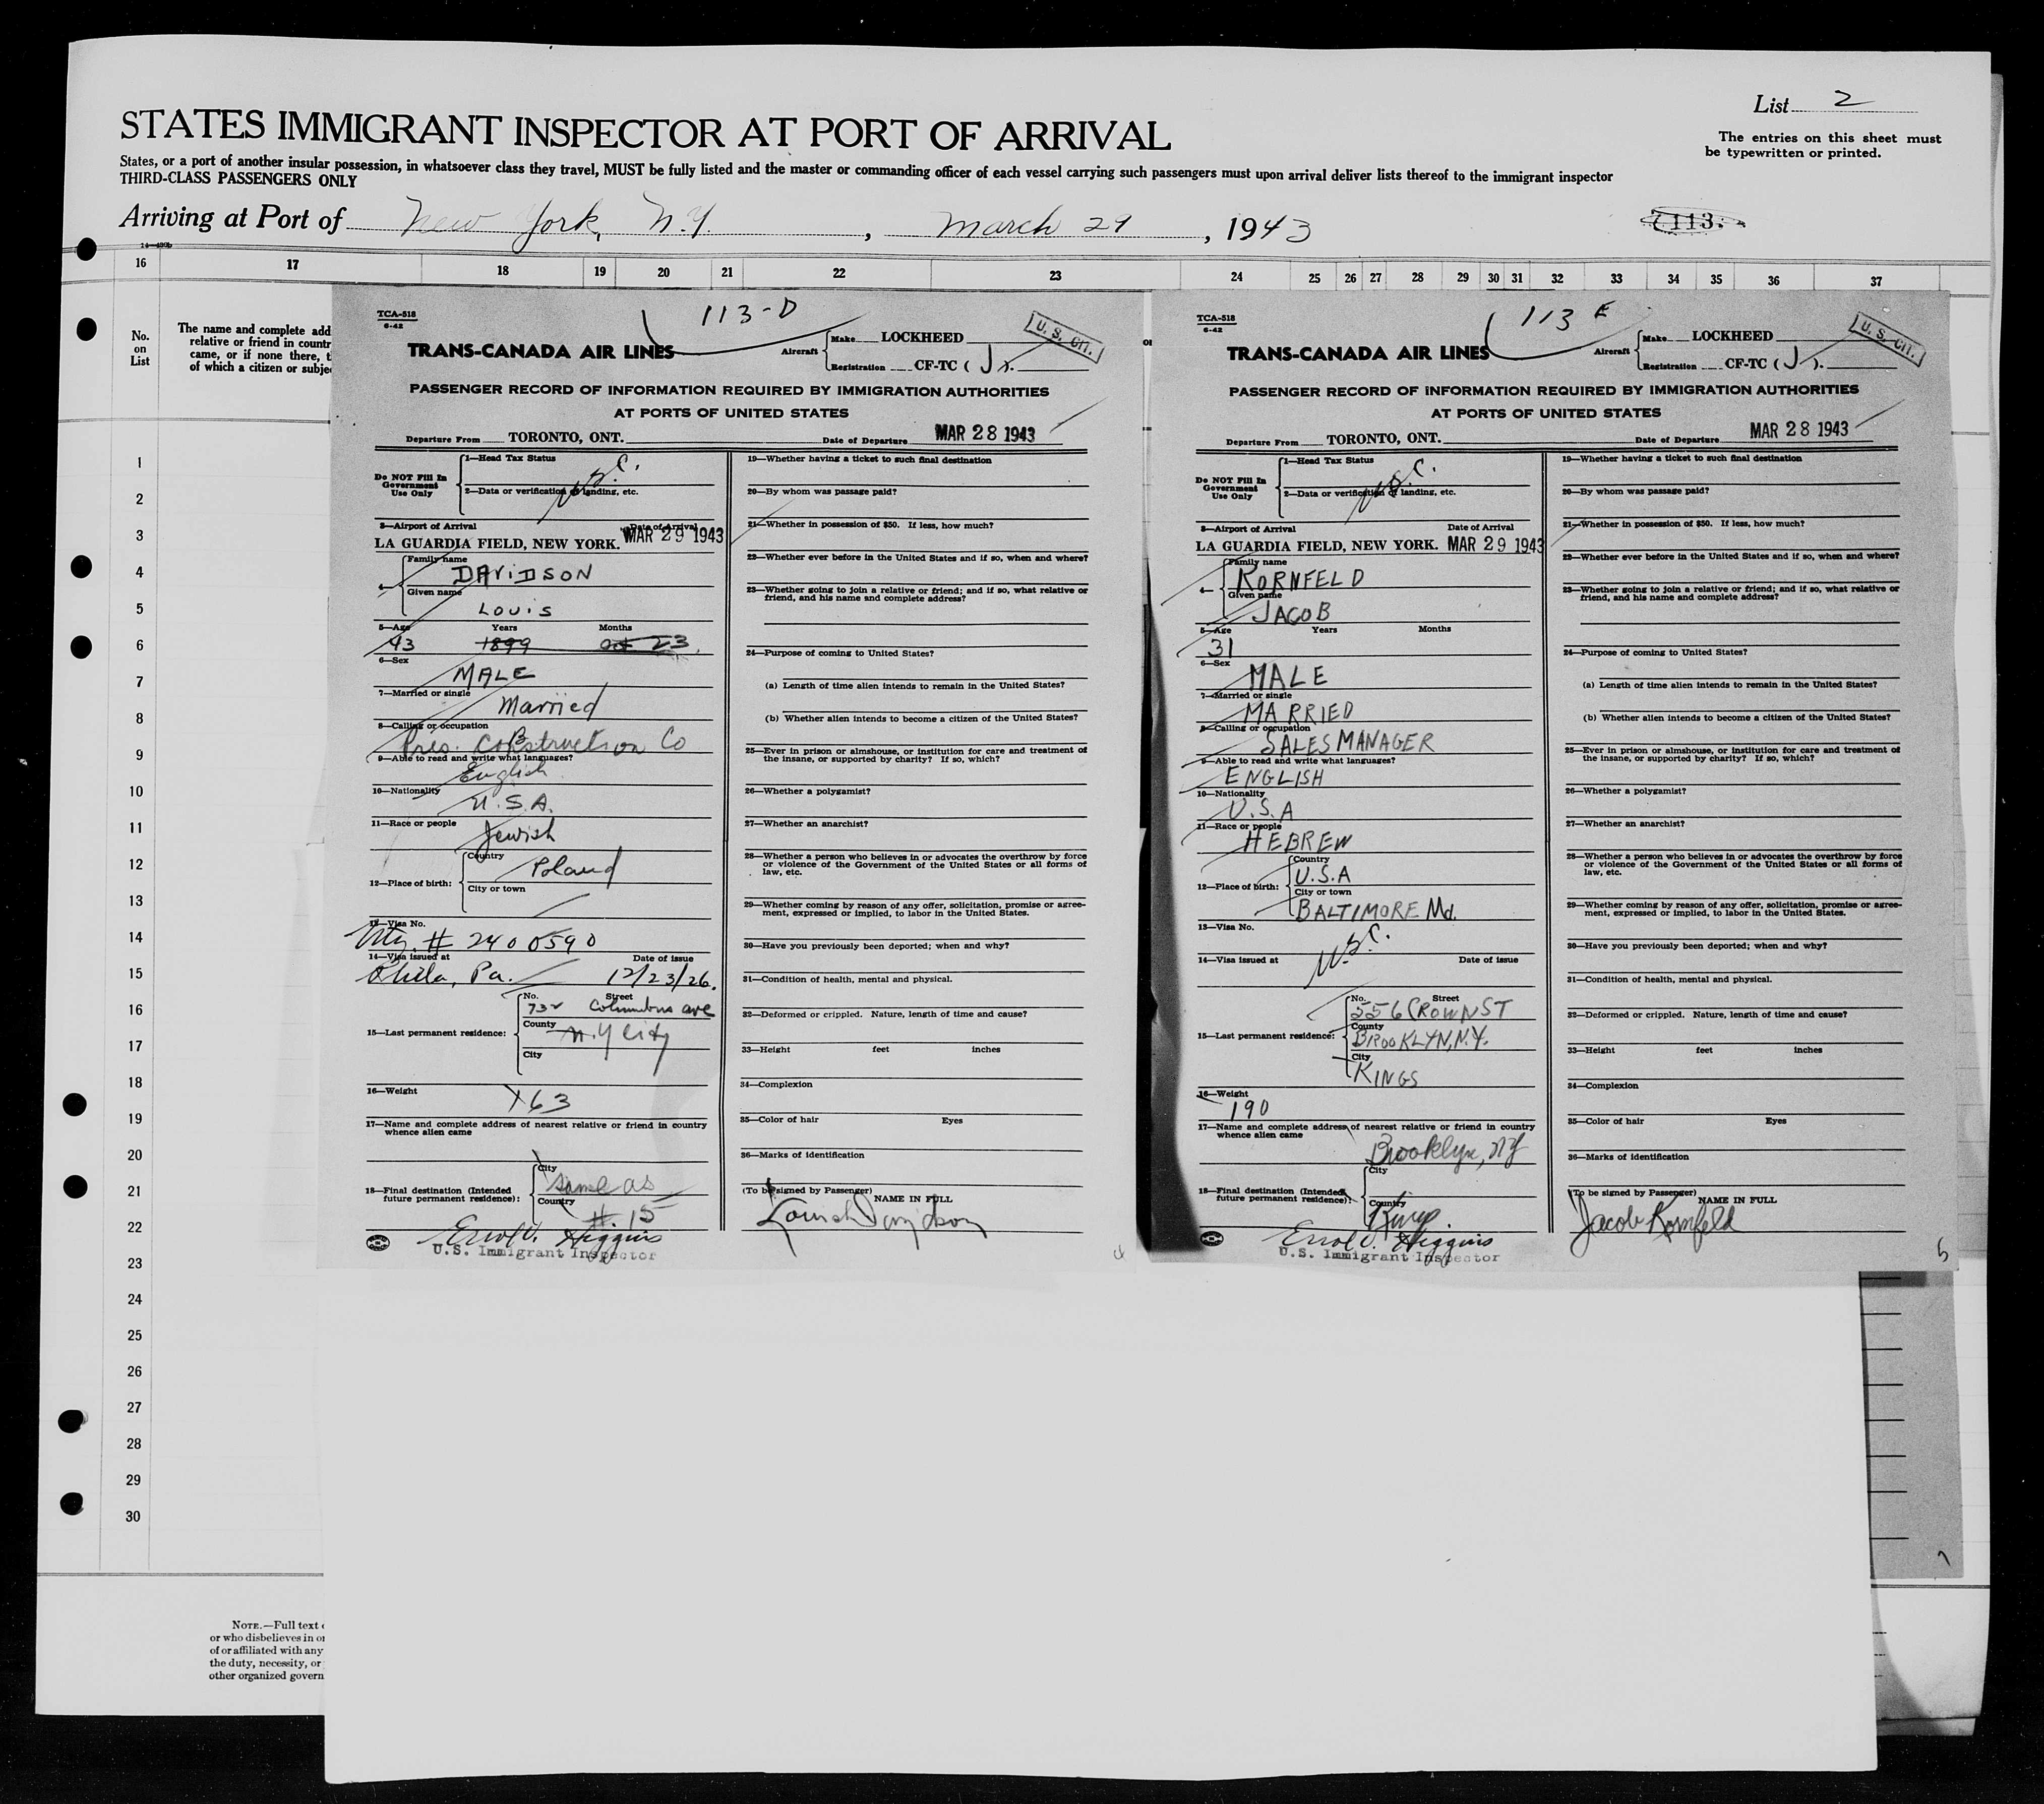 List 2
STATES IMMIGRANT INSPECTOR AT PORT OF ARRIVAL
The entries on this sheet must
be typewritten or printed.
States, or a port of another insular possession, in whatsoever class they travel, MUST be fully listed and the master or commanding officer of each vessel carrying such passengers must upon arrival deliver lists thereof to the immigrant inspector
THIRD-CLASS PASSENGERS ONLY
Arriving at Port of New York, N.Y. , March 29 , 1943
7113.
16 17 18 19 20 21 22 23 24 25 26 27 28 29 30 31 32 33 34 35 36 37
No.
on
List
The name and complete add
relative or friend in countr
came, or if none there, t
of which a citizen or subje
1
2
3
4
5
6
7
8
9
10
11
12
13
14
15
16
17
18
19
20
21
22
23
24
25
26
27
28
29
30
NOTE.—Full text
or who disbelieves in or
of or affiliated with any
the duty, necessity, or
other organized govern
TCA-518
6-42
113-D
TRANS-CANADA AIR LINES
Aircraft
Make LOCKHEED
Registration CF-TC ( J ).
U. S. CIT.
PASSENGER RECORD OF INFORMATION REQUIRED BY IMMIGRATION AUTHORITIES
AT PORTS OF UNITED STATES
Departure From TORONTO, ONT. Date of Departure MAR 28 1943
Do NOT Fill In
Government
Use Only
1—Head Tax Status
U.S.C.
2—Data or verification of landing, etc.
3—Airport of Arrival Date of Arrival
LA GUARDIA FIELD, NEW YORK. MAR 29 1943
4—
Family name
DAViDSON
Given name
LOUiS
5—Age Years Months
43 1899 oct 23
6—Sex
MALE
7—Married or single
Married
8—Calling or occupation
Pres. Construction Co
9—Able to read and write what languages?
English
10—Nationality
U.S.A.
11—Race or people
Jewish
12—Place of birth:
Country
Poland
City or town
13—Visa No.
# 2400590
14—Visa issued at Date of issue
Phila, Pa. 12/23/26.
15—Last permanent residence:
No. Street
732 Columbus ave
County
N.Y City
City
16—Weight
163
17—Name and complete address of nearest relative or friend in country
whence alien came
18—Final destination (Intended
future permanent residence):
City
Same as
Country
#. 15
Errol V. Higgins
U.S. Immigrant Inspector
19—Whether having a ticket to such final destination
20—By whom was passage paid?
21—Whether in possession of $50. If less, how much?
22—Whether ever before in the United States and if so, when and where?
23—Whether going to join a relative or friend; and if so, what relative or
friend, and his name and complete address?
24—Purpose of coming to United States?
(a) Length of time alien intends to remain in the United States?
(b) Whether alien intends to become a citizen of the United States?
25—Ever in prison or almshouse, or institution for care and treatment of
the insane, or supported by charity? If so, which?
26—Whether a polygamist?
27—Whether an anarchist?
28—Whether a person who believes in or advocates the overthrow by force
or violence of the Government of the United States or all forms of
law, etc.
29—Whether coming by reason of any offer, solicitation, promise or agree-
ment, expressed or implied, to labor in the United States.
30—Have you previously been deported; when and why?
31—Condition of health, mental and physical.
32—Deformed or crippled. Nature, length of time and cause?
33—Height feet inches
34—Complexion
35—Color of hair Eyes
36—Marks of identification
(To be signed by Passenger) NAME IN FULL
Louis Davidson
TCA-518
6-42
113 E
TRANS-CANADA AIR LINES
Aircraft
Make LOCKHEED
Registration CF-TC ( J ).
U. S. CIT.
PASSENGER RECORD OF INFORMATION REQUIRED BY IMMIGRATION AUTHORITIES
AT PORTS OF UNITED STATES
Departure From TORONTO, ONT. Date of Departure MAR 28 1943
Do NOT Fill In
Government
Use Only
1—Head Tax Status
U.S.C.
2—Data or verification of landing, etc.
3—Airport of Arrival Date of Arrival
LA GUARDIA FIELD, NEW YORK. MAR 29 1943
4—
Family name
KORNFELD
Given name
JACOB
5—Age Years Months
31
6—Sex
MALE
7—Married or single
MARRIED
8—Calling or occupation
SALES MANAGER
9—Able to read and write what languages?
ENGLISH
10—Nationality
U.S.A
11—Race or people
HEBREW
12—Place of birth:
Country
U.S.A
City or town
BALTIMORE Md.
13—Visa No.
U.S.C.
14—Visa issued at Date of issue
15—Last permanent residence:
No. Street
556 CROWN ST
County
BROOKLYN, N.Y.
City
KINGS
16—Weight
190
17—Name and complete address of nearest relative or friend in country
whence alien came
Brooklyn, NY
18—Final destination (Intended
future permanent residence):
City
Country
Kings.
Errol V. Higgins
U.S. Immigrant Inspector
19—Whether having a ticket to such final destination
20—By whom was passage paid?
21—Whether in possession of $50. If less, how much?
22—Whether ever before in the United States and if so, when and where?
23—Whether going to join a relative or friend; and if so, what relative or
friend, and his name and complete address?
24—Purpose of coming to United States?
(a) Length of time alien intends to remain in the United States?
(b) Whether alien intends to become a citizen of the United States?
25—Ever in prison or almshouse, or institution for care and treatment of
the insane, or supported by charity? If so, which?
26—Whether a polygamist?
27—Whether an anarchist?
28—Whether a person who believes in or advocates the overthrow by force
or violence of the Government of the United States or all forms of
law, etc.
29—Whether coming by reason of any offer, solicitation, promise or agree-
ment, expressed or implied, to labor in the United States.
30—Have you previously been deported; when and why?
31—Condition of health, mental and physical.
32—Deformed or crippled. Nature, length of time and cause?
33—Height feet inches
34—Complexion
35—Color of hair Eyes
36—Marks of identification
(To be signed by Passenger) NAME IN FULL
Jacob Kornfeld
5